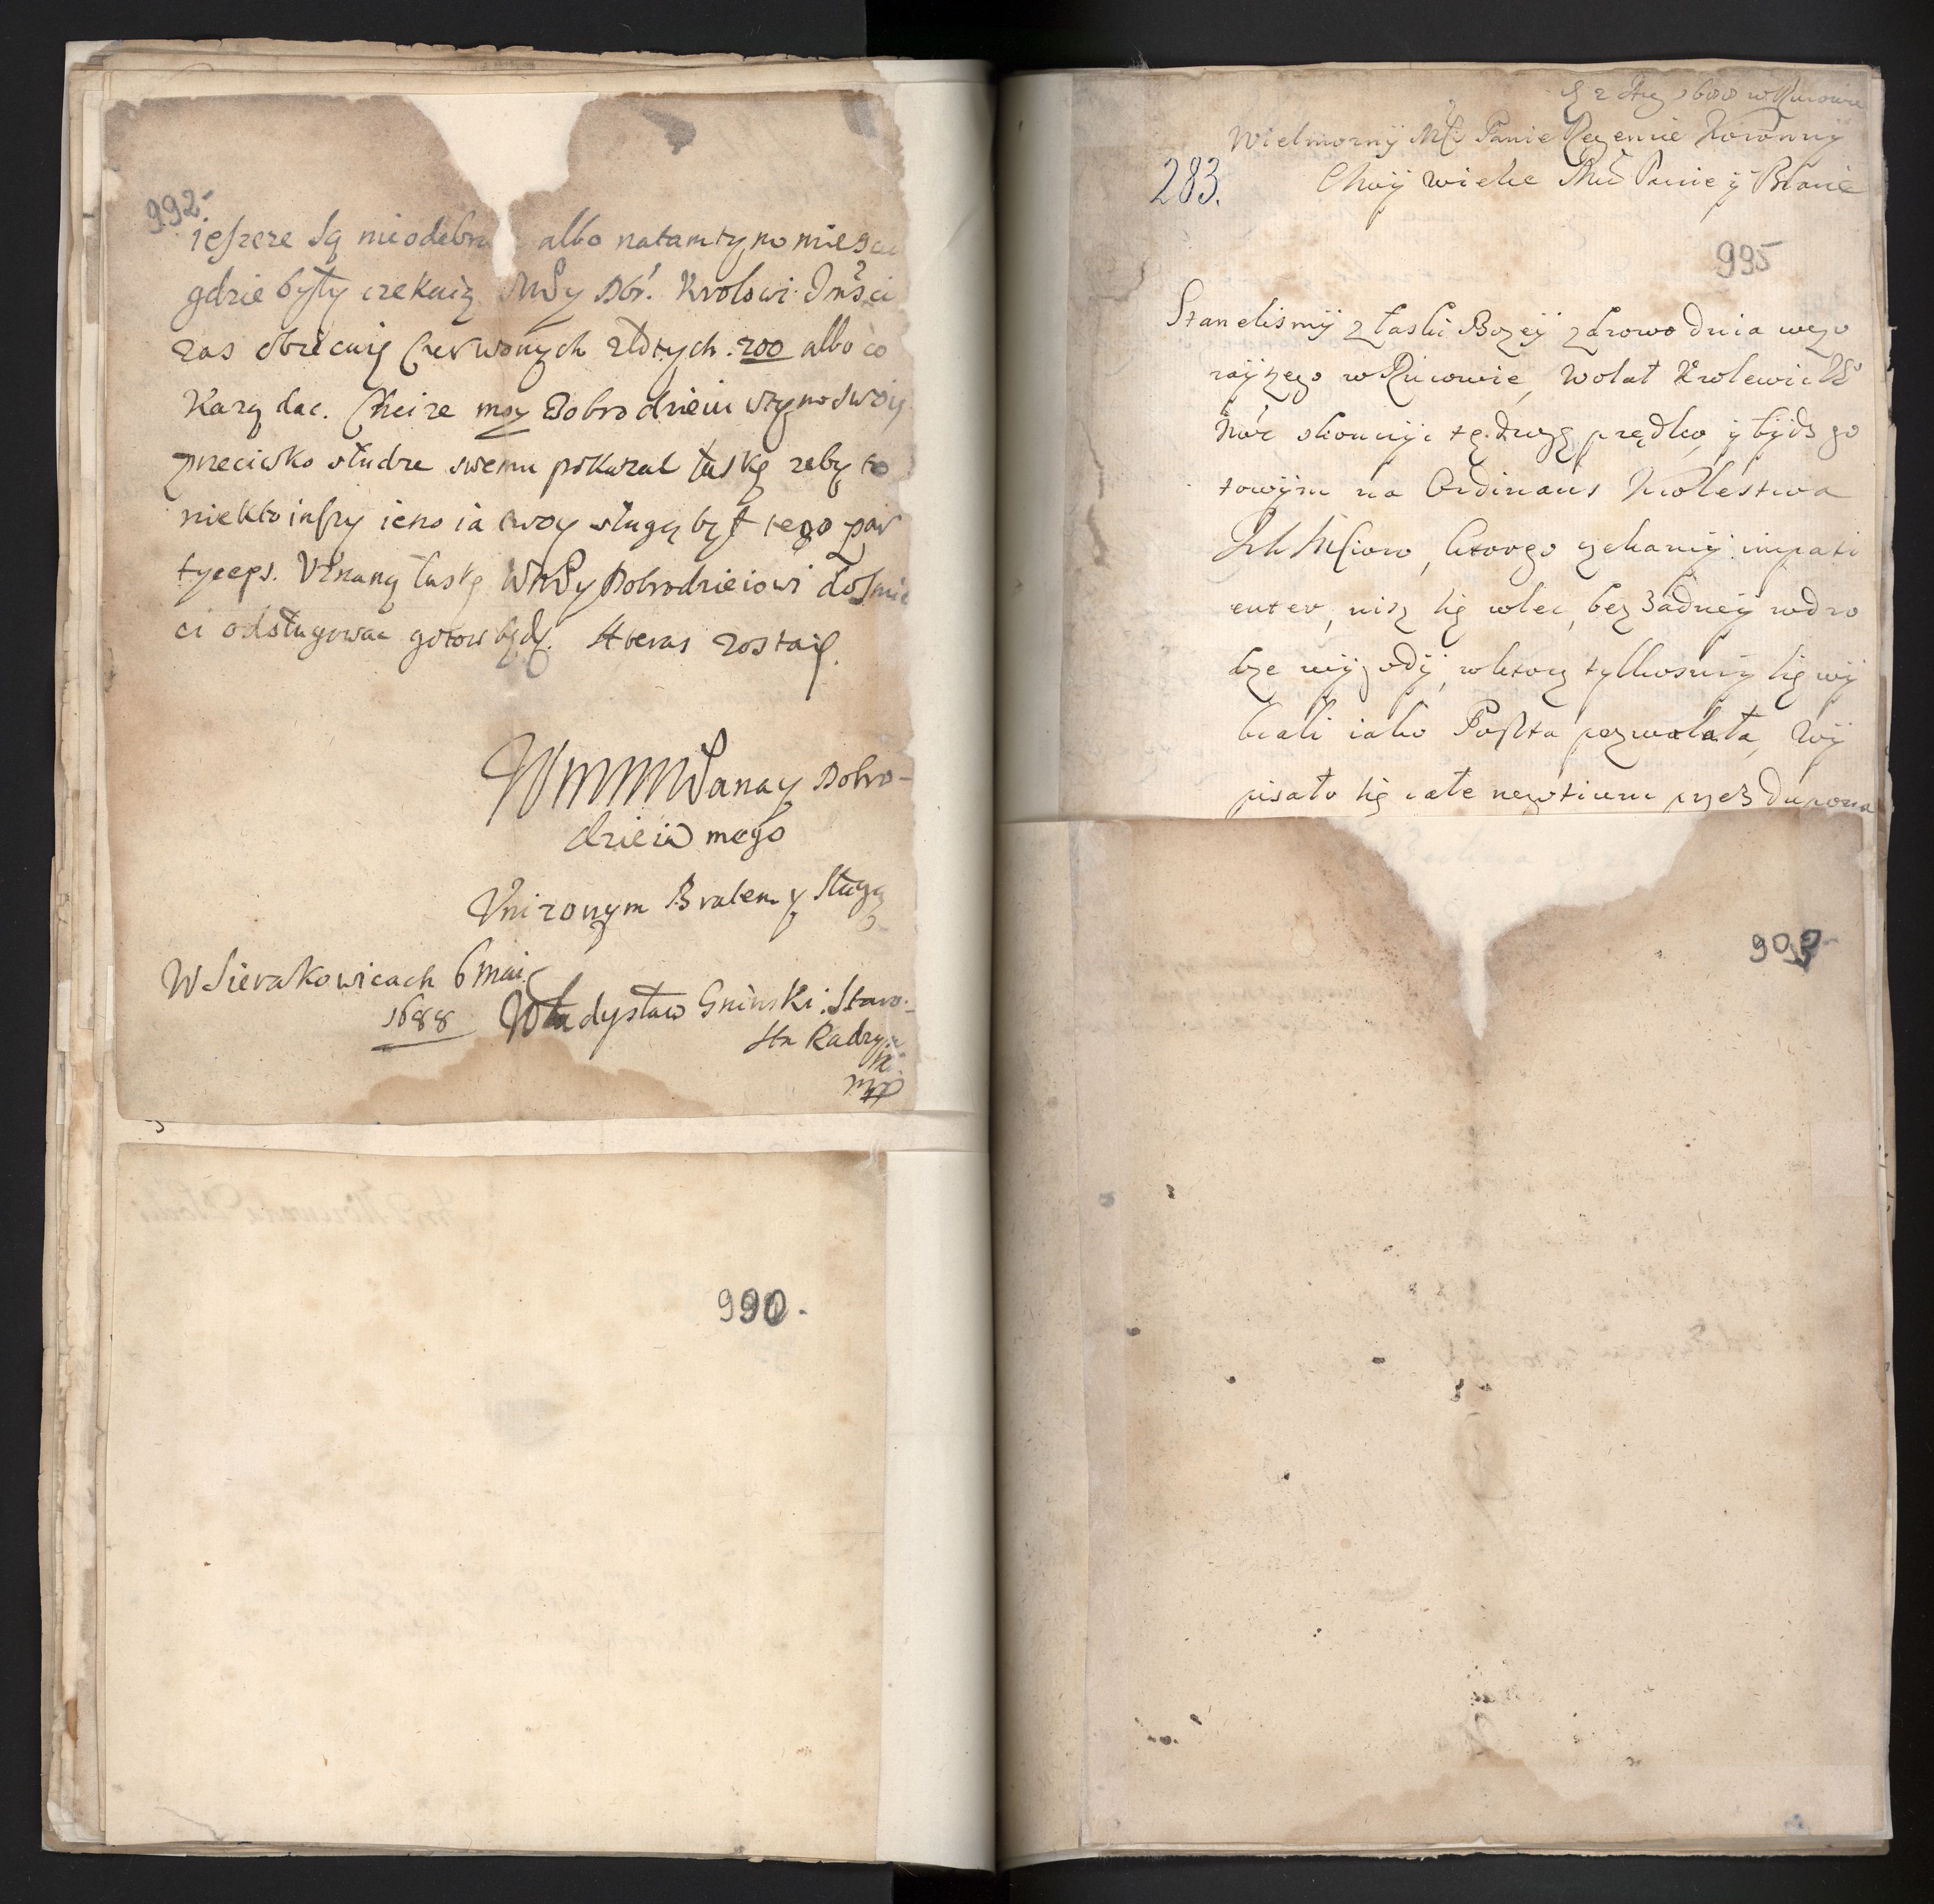 992
ieszcze są nieodebra albo natamtym miesc
gdzie były czekaią WMPy Dobr. Krolowi Jmści
zas obiecuię Czerwonych złotych. 200 albo co
Karzą dac. Chcize moy Dobrodzieiu wtym swoią
przeciwko słudze swemu pokazac łaskę zeby to
niekto inszy ieno ia twoy sługa był tego par
tyceps. Uznaną łaskę WMPy Dobrodzieiowi do smie
ci odsługowac gotow będę. A teraz zostaię.
WMMMPana y Dobro-
dzieia mego
Unizonym Bratem y sługą
W Sierakowicach 6 mai
1688
Władysław Gninski. Staro-
sta Radzy
mpp
990.
283.
Wielmozny Mći Panie Regencie Koronny
Moy wielce Mći Panie y Bracie
995
Stanelismÿ z łaski Bozeÿ zdrowo dnia wczo
rayszego w Rucowie, wolał Krolewic
skonczyc tę drogę prędko, ÿ bydz go
towÿm na Ordinans Krolestwa
Ich Mściow, ktorego czekaniÿ impati
enter, nisz się wlec, bez zadneÿ w dro
dze wÿgodÿ, w ktorą tylkosmÿ się wÿ
brali iako Poszta pozwalała, Wÿ
pisało się całe negotium przez Dupona
903